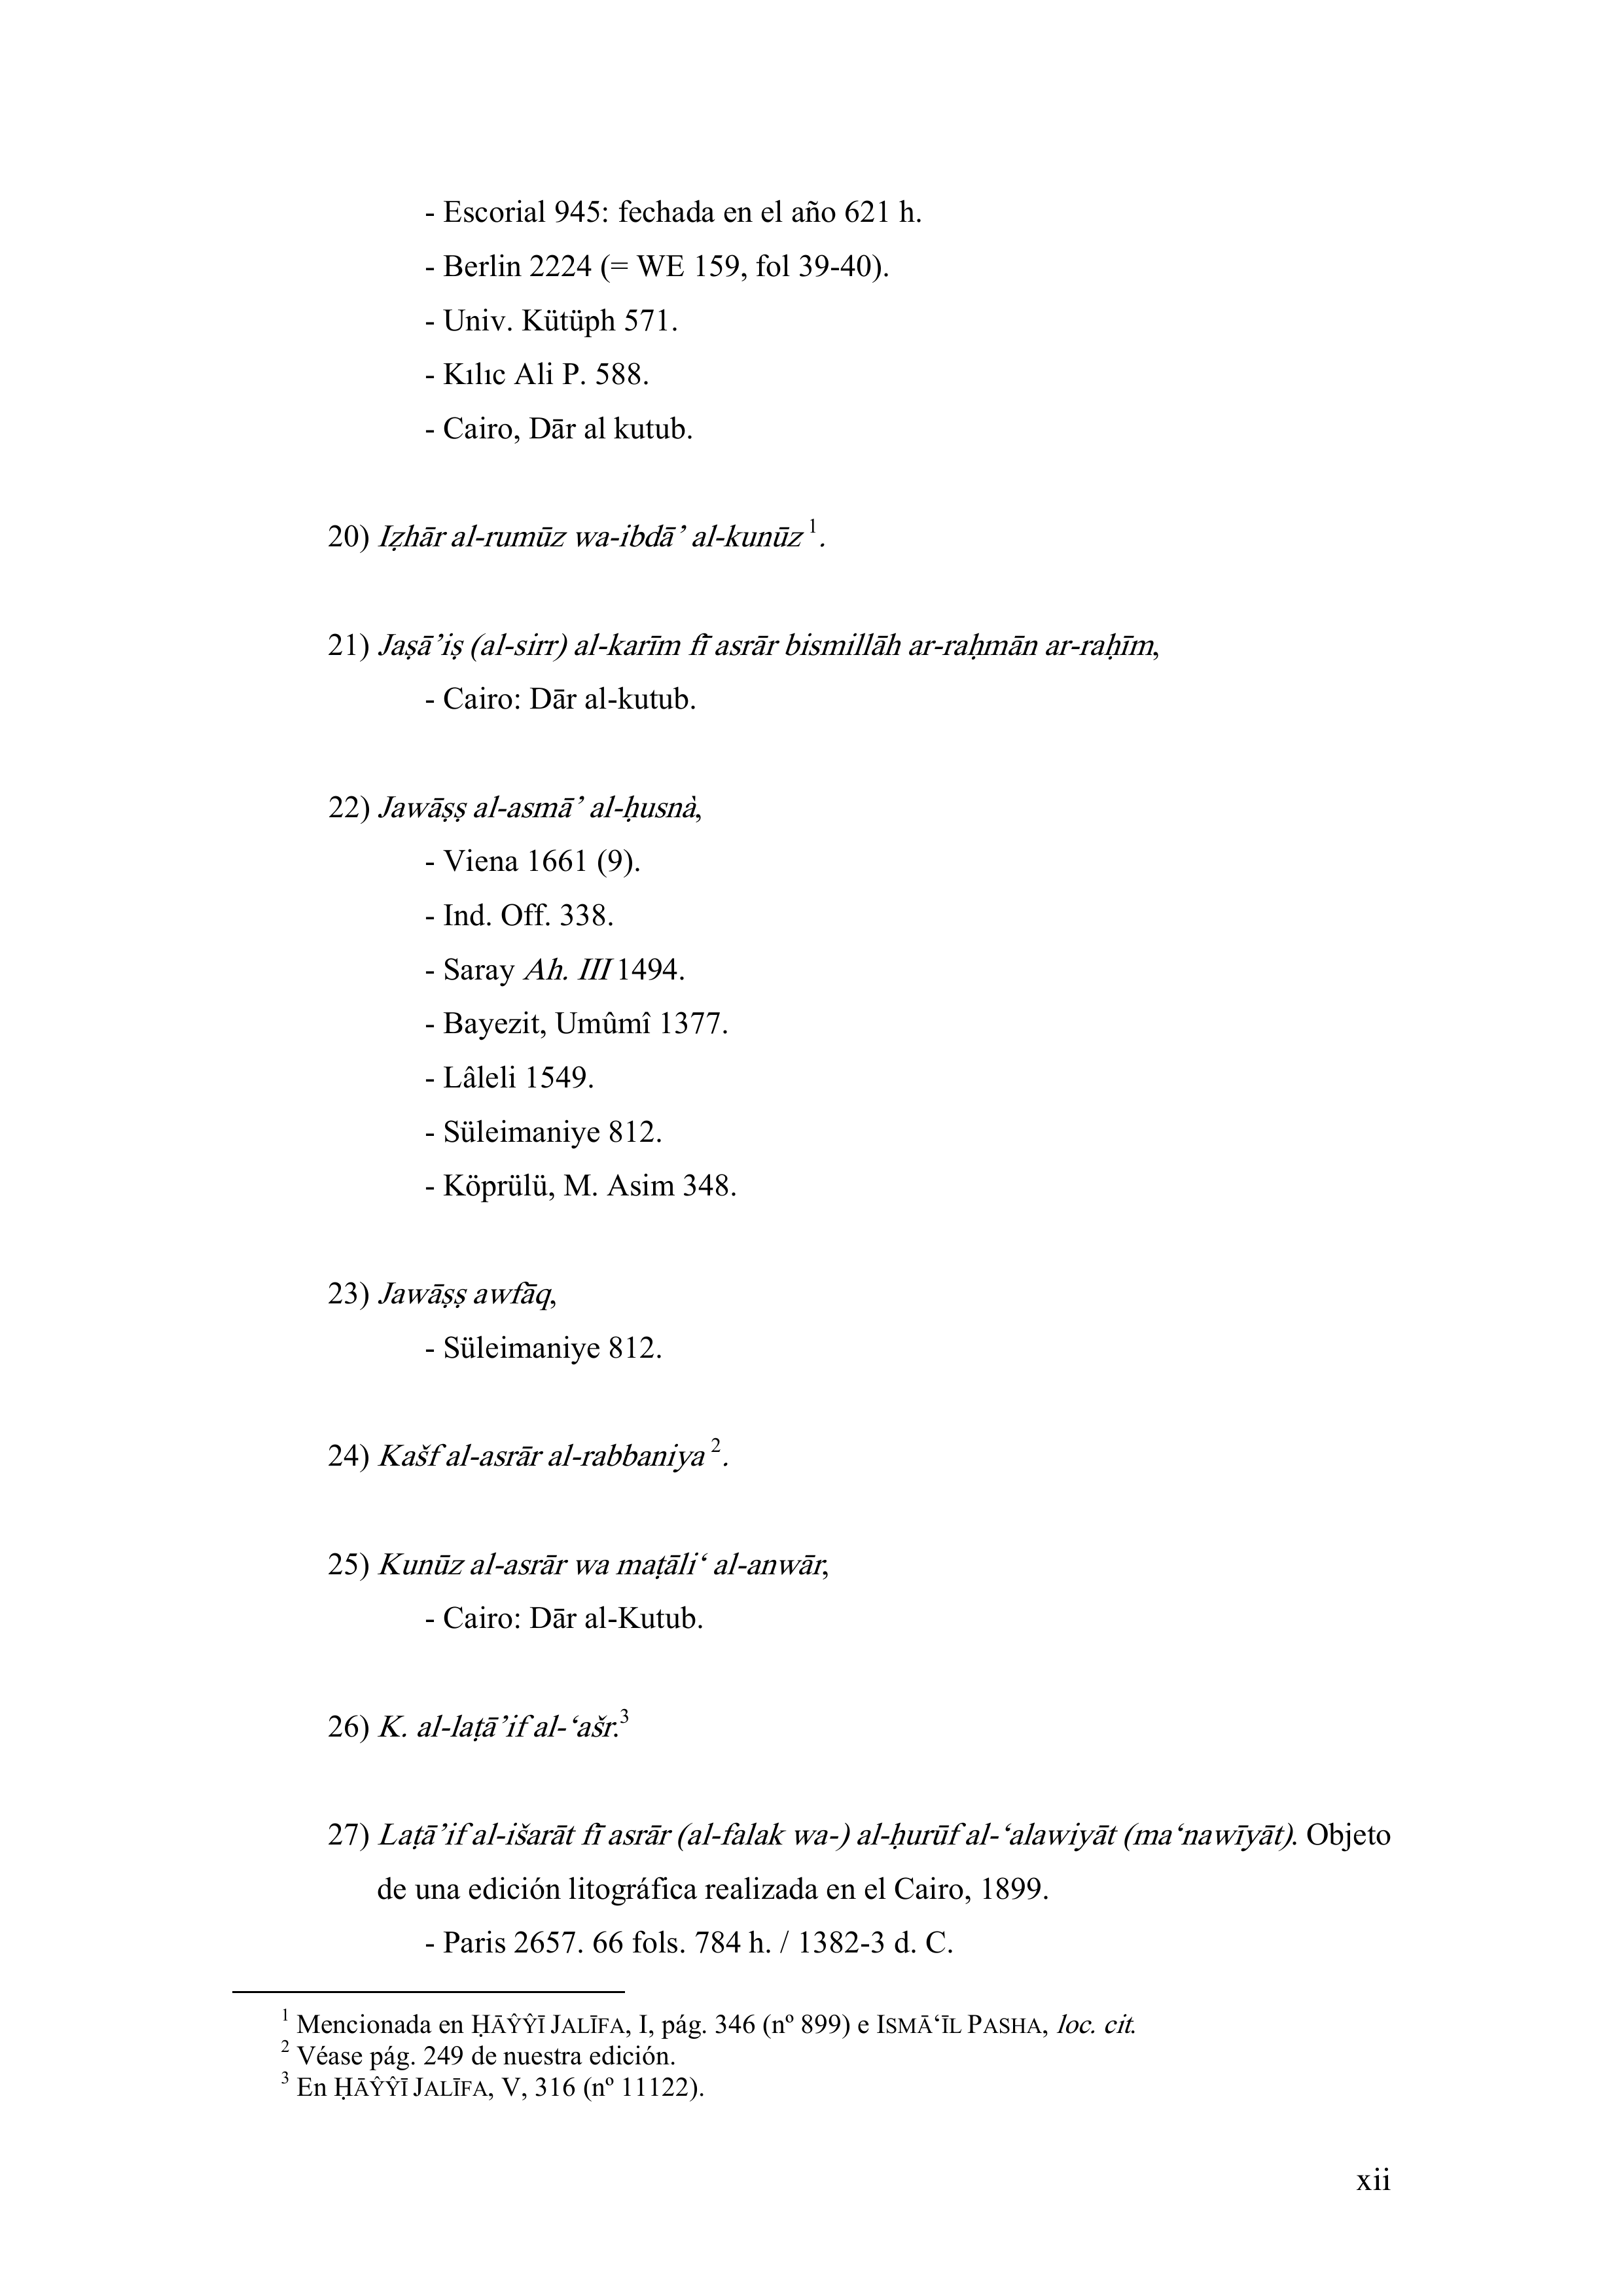 - Escorial 945: fechada en el año 621 h.
- Berlin 2224 (= WE 159, fol 39-40).
- Univ. Kütüph 571.
- Kılıc Ali P. 588.
- Cairo, Dār al kutub.
20) Iẓhār al-rumūz wa-ibdā’ al-kunūz ¹.
21) Jaṣā’iṣ (al-sirr) al-karīm fī asrār bismillāh ar-raḥmān ar-raḥīm,
- Cairo: Dār al-kutub.
22) Jawāṣṣ al-asmā’ al-ḥusnà,
- Viena 1661 (9).
- Ind. Off. 338.
- Saray Ah. III 1494.
- Bayezit, Umûmî 1377.
- Lâleli 1549.
- Süleimaniye 812.
- Köprülü, M. Asim 348.
23) Jawāṣṣ awfāq,
- Süleimaniye 812.
24) Kašf al-asrār al-rabbaniya ².
25) Kunūz al-asrār wa maṭāli‘ al-anwār,
- Cairo: Dār al-Kutub.
26) K. al-laṭā’if al-‘ašr.³
27) Laṭā’if al-išarāt fī asrār (al-falak wa-) al-ḥurūf al-‘alawiyāt (ma‘nawīyāt). Objeto
de una edición litográfica realizada en el Cairo, 1899.
- Paris 2657. 66 fols. 784 h. / 1382-3 d. C.
¹ Mencionada en ḤĀŶŶĪ JALĪFA, I, pág. 346 (nº 899) e ISMĀ‘ĪL PASHA, loc. cit.
² Véase pág. 249 de nuestra edición.
³ En ḤĀŶŶĪ JALĪFA, V, 316 (nº 11122).
xii